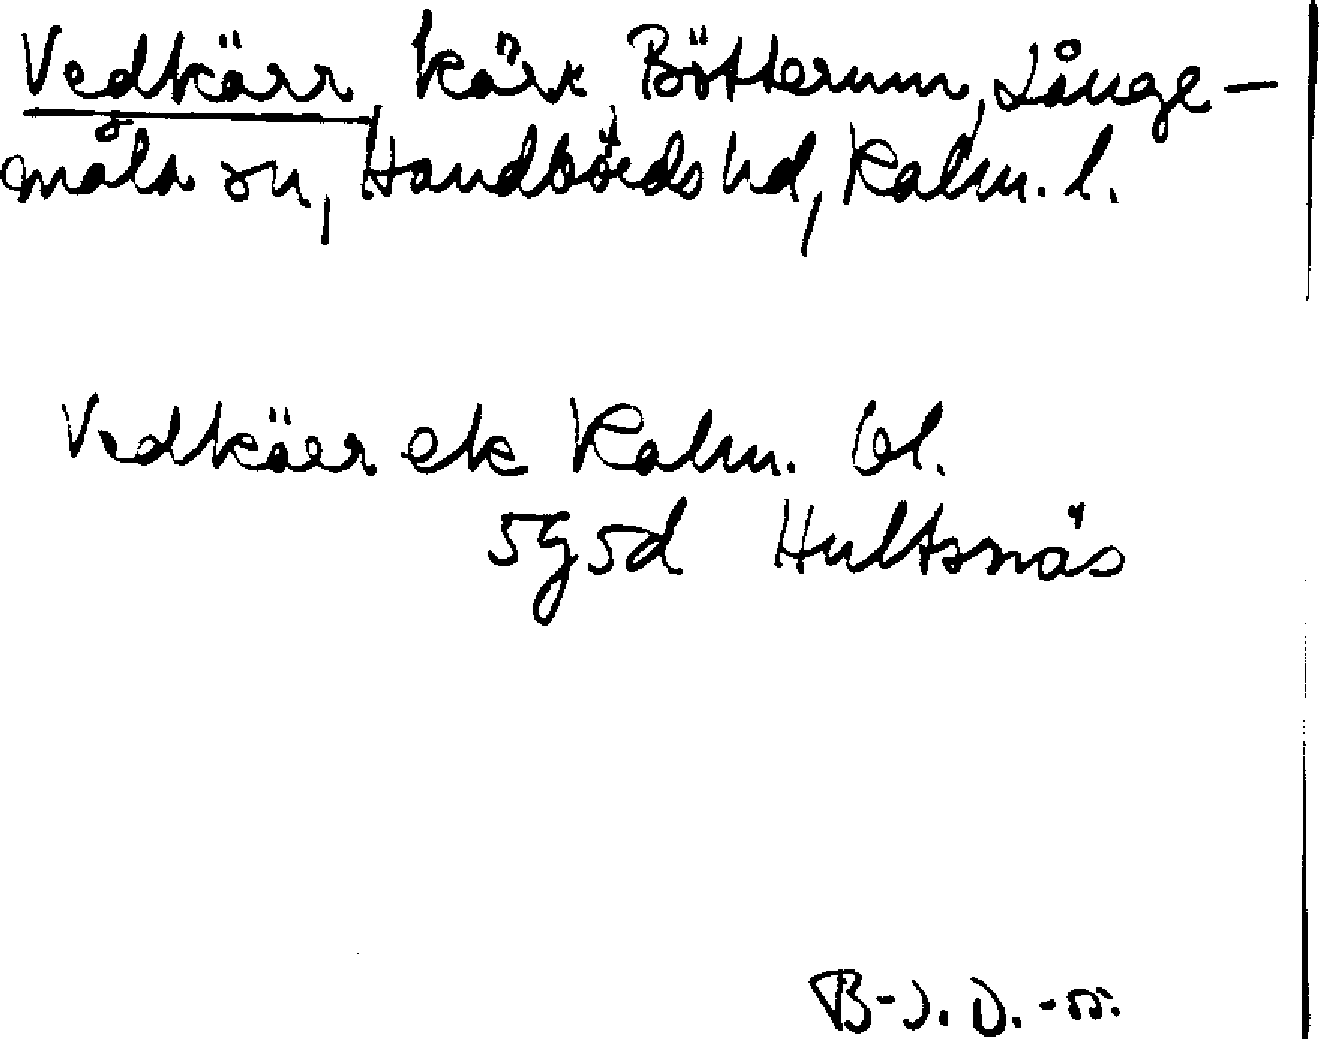 Vedkärr, kärr, Bötterum, Långe-
måla sn, Handbörds hd, Kalm. l.
Vedkärr ek Kalm. bl.
5g5d Hultsnäs
B-J. D. -55.